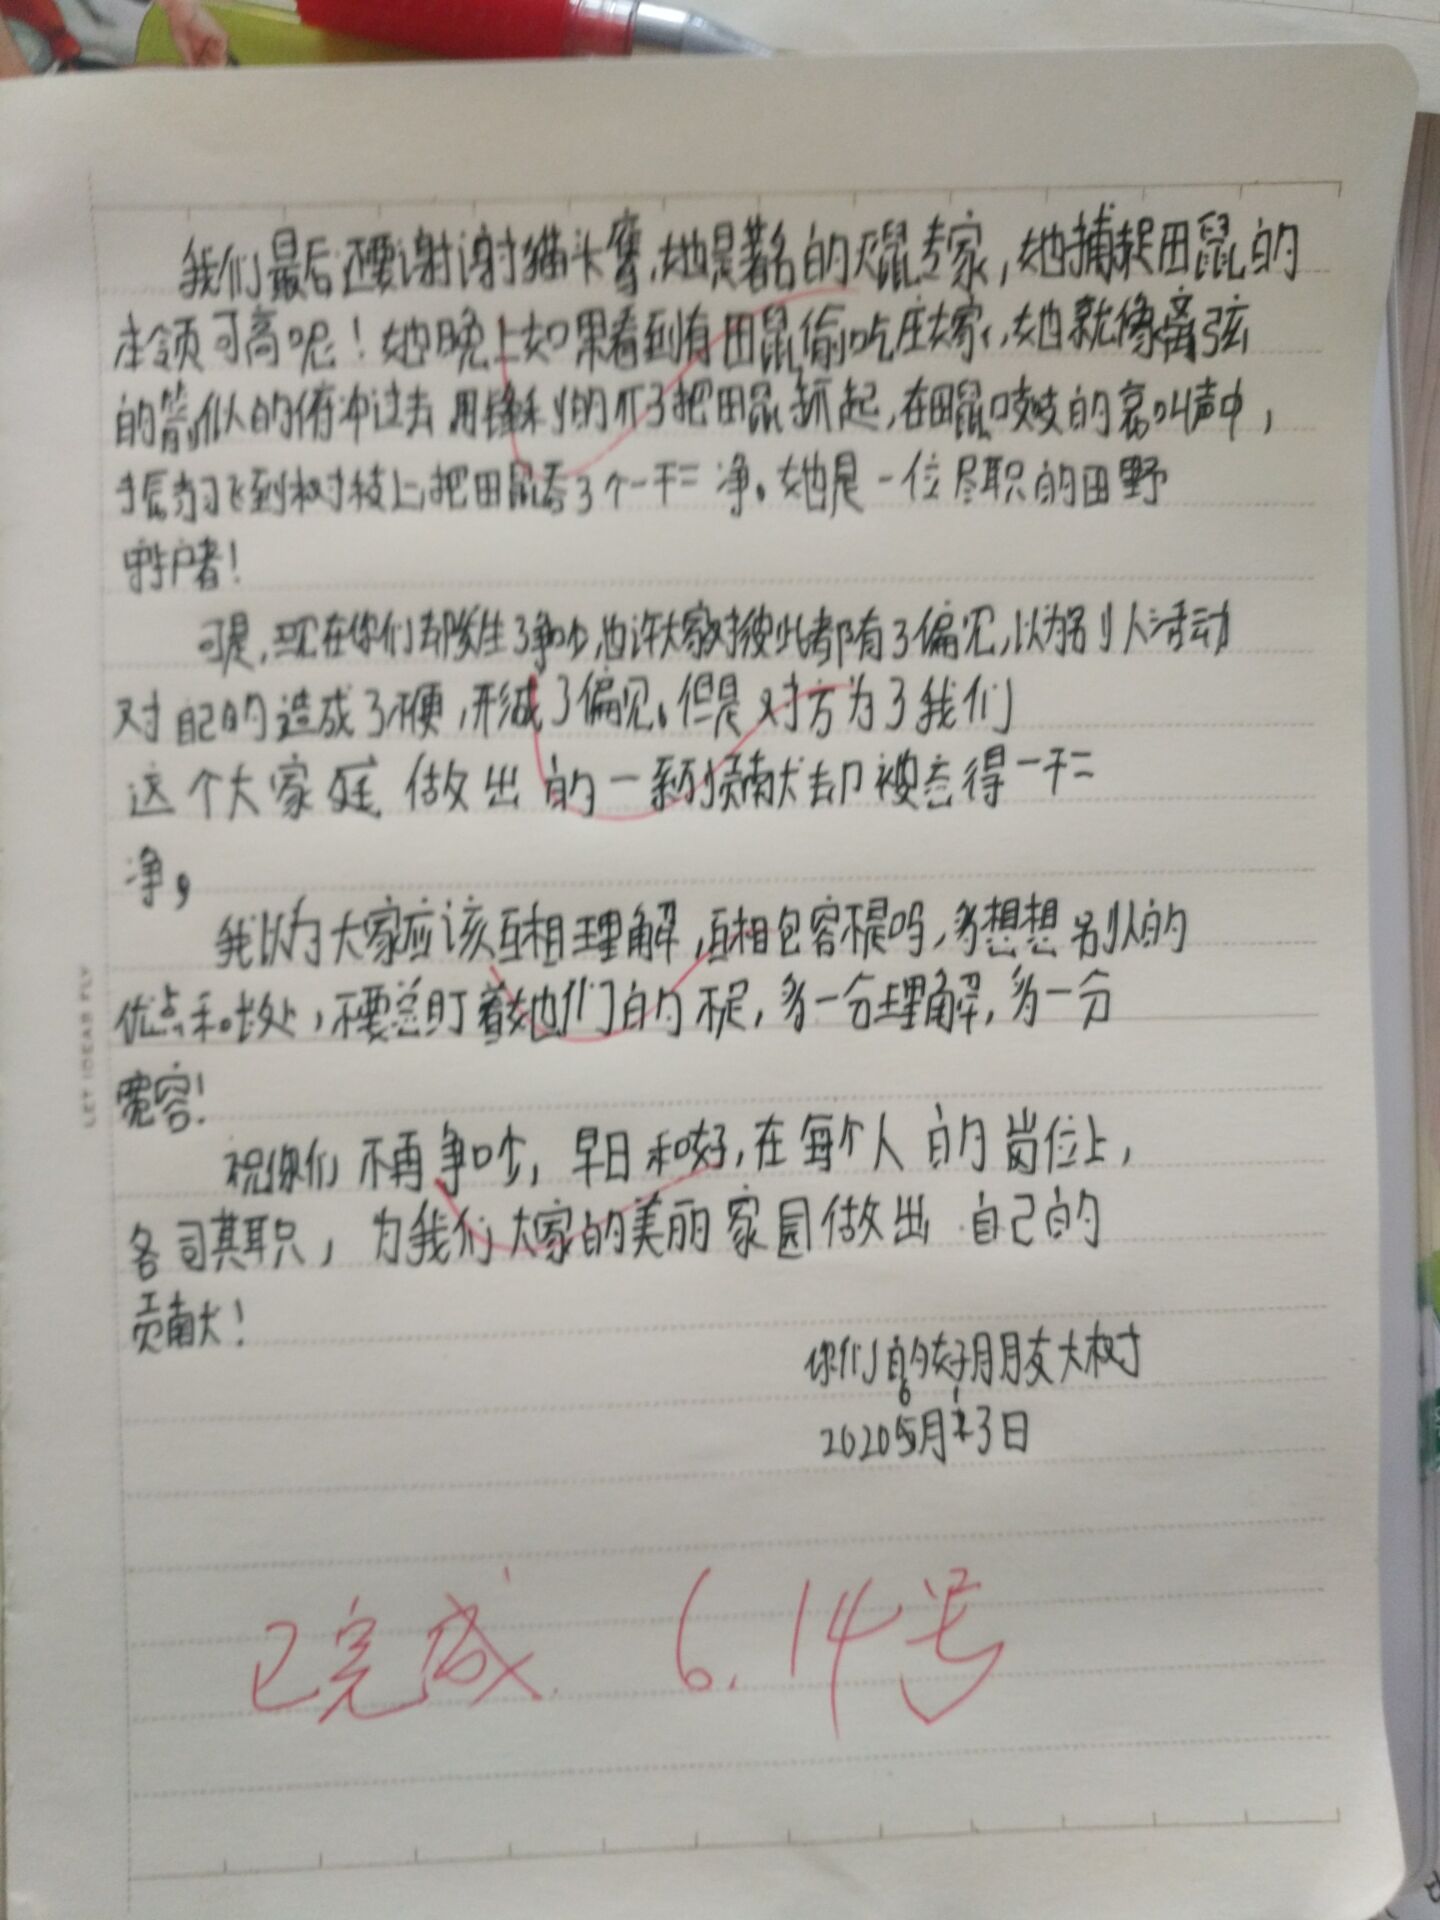 我们最后还要谢谢猫头鹰,她是著名的灭鼠专家,她捕捉田鼠的
本领可高呢!她晚上如果看到有田鼠偷吃庄稼,她就像离弦
的箭似的俯冲过去 用锋利的爪子把田鼠抓起,在田鼠吱吱的哀叫声中,
振翅飞到树枝上把田鼠吞了个一干二净。她是一位尽职的田野
守护者!
可是,现在你们却发生了争吵,也许大家对彼此都有了偏见,以为别人活动
对自己的造成了不便,形成了偏见。但是对方为了我们
这个大家庭 做出的一系列贡献却被忘得一干二
净,
我认为大家应该互相理解,互相包容不是吗,多想想别人的
优点和长处,不要总盯着她们的不足,多一分理解,多一分
宽容!
祝你们不再争吵,早日和好,在每个人的岗位上,
各司其职,为我们大家的美丽家园做出 自己的
贡献!
你们的好朋友大树
6 1
2020 月 3日
已完成. 6.14号
LET IDEAS FLY